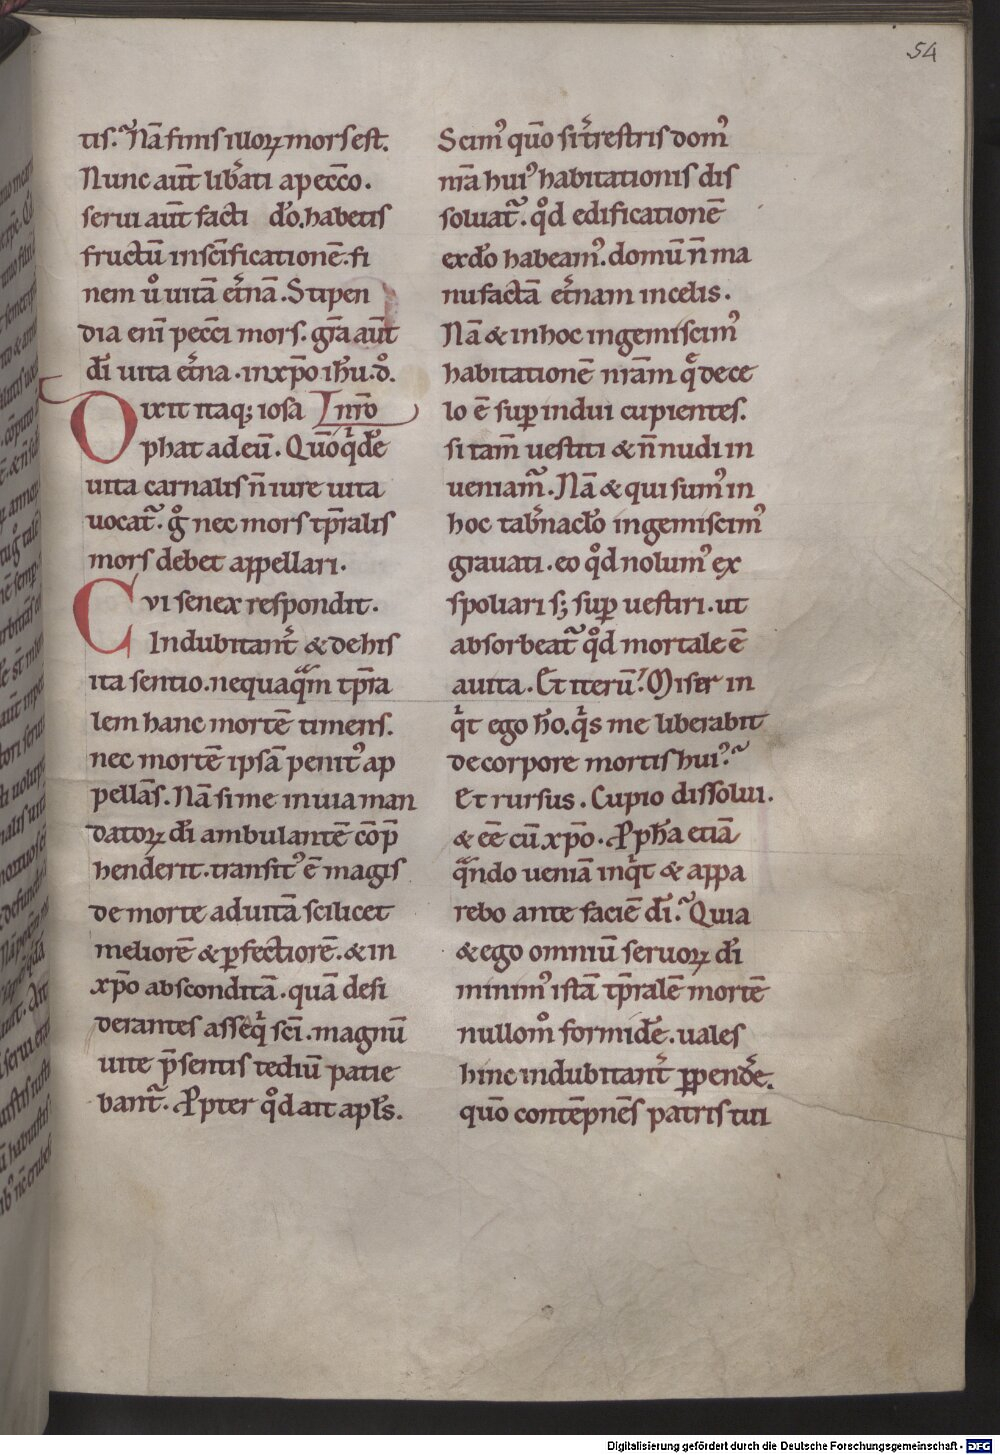 54
tis. Nā finis illoꝝ mors est.
Nunc aūt lib̄ati apecc̄o.
serui aūt facti d̄o. habetis
fructū insc̄ificationē. fi
nem ů uitā et̄nā. Stipen
dia eni pecc̄i mors. gr̄a aūt
dī uita et̄na. inxp̄o ih̄u. d̊.
Dixit itaq; iosa
phat adeū. Quō q̇de
uita carnalis n̄ iure uita
uocat̃. g̊ nec mors tp̄ralis
mors debet appellari.
Cvi senex respondit.
Indubitant̄ & dehis
ita sentio. nequaq̃m tp̄ra
lem hanc mortē timens.
nec mortē ipsā penitꝰ ap
pellās. Nā si me inuia man
datoꝝ dī ambulantē cōp̄
henderit. transitꝰ ē magis
de morte aduitā scilicet
meliorē & ꝑfectiorē. & in
xp̄o absconditā. quā desi
derantes asseq̇ sc̄i. magnū
uite p̄sentis tediū patie
bant̃. Ꝓpter q̊d ait apl̄s.
Scimꝰ quō si t̄restris domꝰ
nr̄a huiꝰ habitationis dis
soluat̃. q̊d edificationē
exd̄o habeamꝰ. domū n̄ ma
nufactā et̄nam incelis.
Nā & inhoc ingemiscimꝰ
habitationē nr̄am q̄ dece
lo ē suꝑindui cupientes.
si tam̄ uestiti & n̄ nudi in
ueniam̃. Nā & qui sumꝰ in
hoc tab̄nacl̄o ingemiscimꝰ
grauati. eo q̊d nolumꝰ ex
spoliari s; suꝑ uestiri. ut
absorbeat̃ q̊d mortale ē
auita. Et iterū. Miser in
q̇t ego h̄o. q̇s me liberabit
decorpore mortis huiꝰ.
Et rursus. Cupio dissolui.
& eē cū xp̄o. Ꝓph̄a etiā
q̃ndo ueniā inq̇t & appa
rebo ante faciē dī. Quia
& ego omniū seruoꝝ dī
minimꝰ istā tp̄ralē mortē
nullom̊ formid̄e. uales
hinc indubitant̄ ꝑpend̄e.
quō contēpnēs patris tui
Digitalisierung gefördert durch die Deutsche Forschungsgemeinschaft - DFG